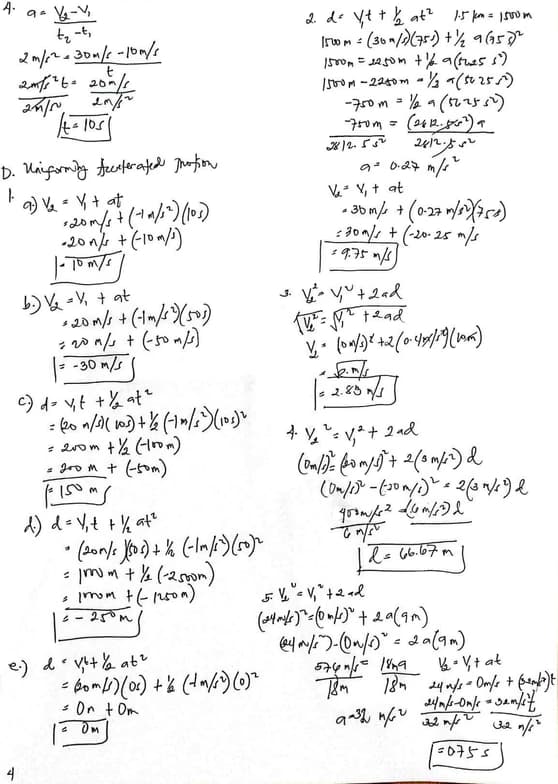 4. a = V₂-V₁
t₂-t₁
2m/s² = 30m/s - 10m/s
t
2m/s² t = 20m/s
2m/s² 2m/s²
t = 10s
D. Uniformly Accelerated Motion
1. a) V₂ = V₁ + at
= 20m/s + (-1m/s²)(10s)
= 20m/s + (-10m/s)
= 10m/s
b.) V₂ = V₁ + at
= 20m/s + (-1m/s²)(50s)
= 20m/s + (-50m/s)
= -30m/s
c) d = V₁t + ½ at²
= (20m/s)(10s) + ½ (-1m/s²)(10s)²
= 200m + ½ (-100m)
= 200m + (-50m)
= 150m
d.) d = V₁t + ½ at²
= (20m/s)(50s) + ½ (-1m/s²)(50)²
= 1000m + ½ (-2500m)
= 1000m + (-1250m)
= -250m
e.) d = V₁t + ½ at²
= (20m/s)(0s) + ½ (-1m/s²)(0)²
= 0m + 0m
= 0m
4
2. d = V₁t + ½ at² 1.5km = 1500m
1500m = (30m/s)(75s) + ½ a(75s)²
1500m = 2250m + ½ a(5625s²)
1500m - 2250m = ½ a(5625s²)
-750m = ½ a(5625s²)
-750m = (2812.5s²)a
2812.5s² 2812.5s²
a = 0.27m/s²
V₂ = V₁ + at
= 30m/s + (0.27m/s²)(75s)
= 30m/s + (-20.25m/s)
= 9.75m/s
3. V₂² = V₁² + 2ad
√V₂² = √V₁² + 2ad
V₂ = (0m/s)² + 2(0.4m/s²)(10m)
= 2.83m/s
4. V₂² = V₁² + 2ad
(0m/s)² = (20m/s)² + 2(3m/s²)d
(0m/s)² - (20m/s)² = 2(3m/s²)d
400m/s² = (6m/s²)d
6m/s²
d = 66.67m
5. V₂² = V₁² + 2ad
(24m/s)² = (0m/s)² + 2a(9m)
(24m/s²) - (0m/s)² = 2a(9m)
576m/s = 18ma
18m 18m
a = 32 m/s²
V₂ = V₁ + at
24m/s = 0m/s + (32m/s²)t
24m/s - 0m/s = 32m/s² t
32m/s² 32m/s²
= 0.75s